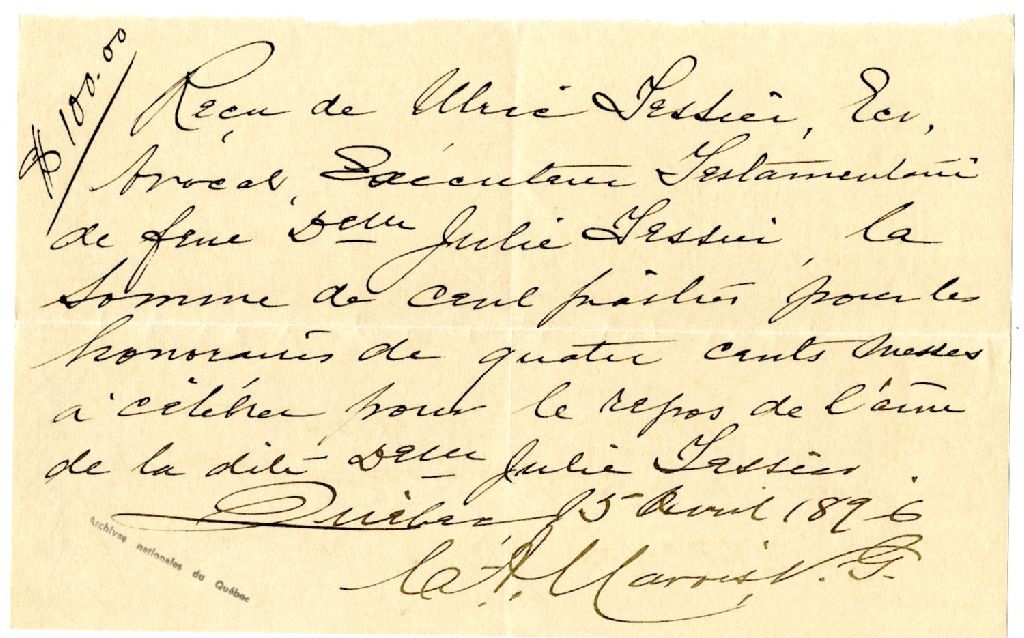 $100.00
Reçu de Ulric Tessier, Ecr,
Avocat, Exécuteur Testamentaire
de feue Delle Julie Tessier, la
somme de cent piastres pour les
honoraires de quatre cents messes
à célébrer pour le repos de l'âme
de la dite Delle Julie Tessier.
Québec, 15 Avril 1896
C. A. Marois, V. G.
Archives nationales du Québec